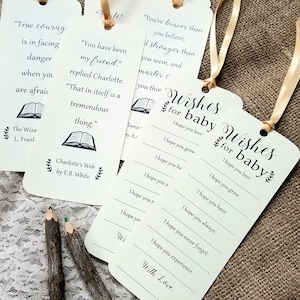 "True courage
is in facing
danger
when you
are afraid
The Wizard
L. Frank
"You have been
my friend,"
replied Charlotte.
"That in itself is a
tremendous
thing."
Charlotte's Web
by E.B. White
You're braver than
you believe,
stronger than
you seem, and
Wishes
for baby
I hope you love:
I hope you
I hope you
I hope you
I hope you
Wishes
for baby
I hope you love:
I hope you have:
I hope you always:
I hope you never forget:
I hope you experience:
With Love,